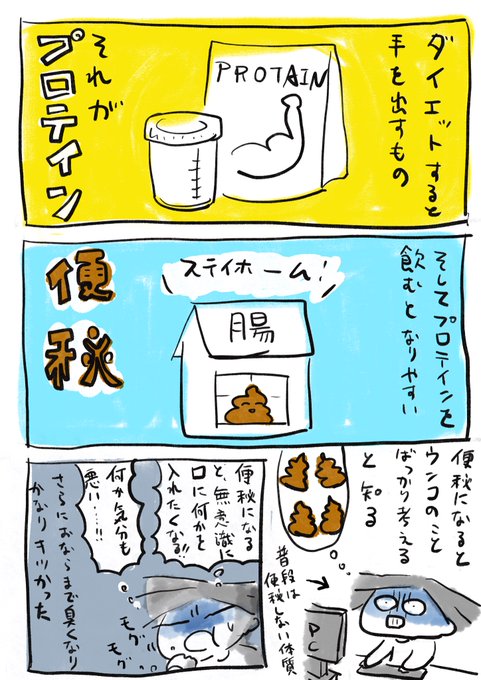 ダイエットすると
手を出すもの
PROTAIN
それが
プロテイン
そしてプロテインを
飲むとなりやすい
ステイホーム!
腸
便秘
便秘になると
ウンコのこと
ばっかり考える
と知る
普段は
便秘しない体質
PC
便秘になる
と、無意識に
口に何かを
入れたくなる!!
何か気分も
悪い…!!
モグ
モグ
さらにおならまで臭くなり
かなりキツかった